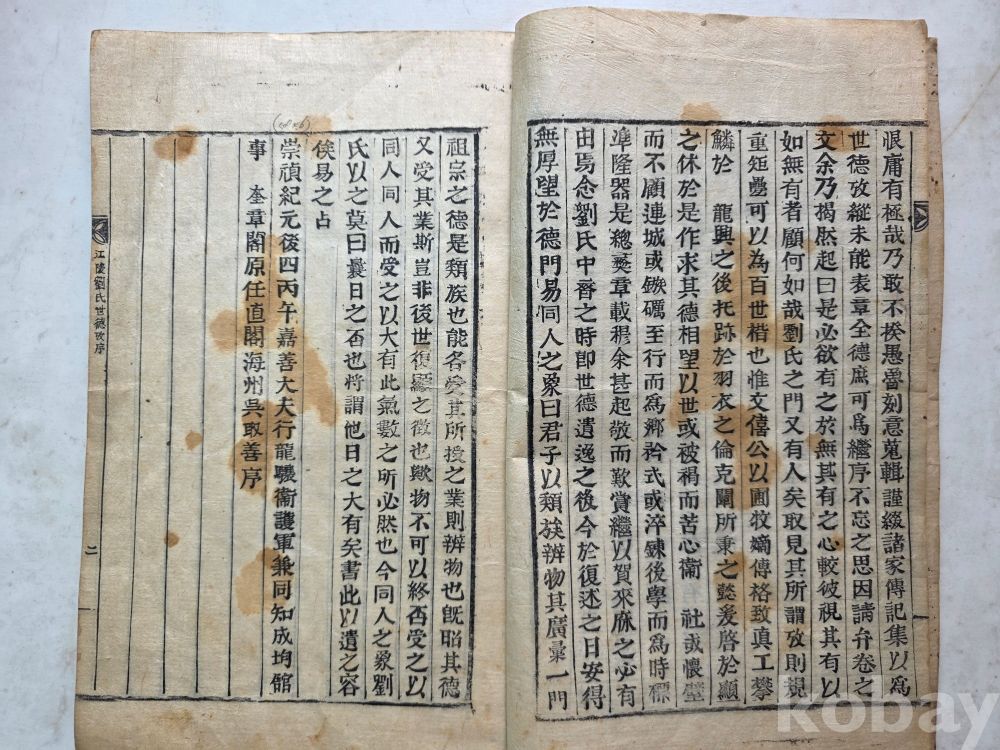 恨庸有極哉乃敢不揆愚魯刻意蒐輯謹綴諸家傳記集以爲
世德攷縱未能表章全德庶可爲繼序不忘之思因請弁卷之
文余乃揭然起曰是必欲有之於無其有之心較彼視其有以
如無有者顧何如哉劉氏之門又有人矣取見其所謂攷則規
重矩疊可以為百世楷也惟文僖公以圃牧嫡傳格致眞工攀
鱗於 龍興之後托跡於羽衣之倫克闡所秉之懿爰啓於顯
之休於是作求其德相望以世或被禍而苦心衞 社或懷璧
而不顧連城或鏃礪至行而爲鄕矜式或淬鍊後學而爲時標
準隆器是總羙章載穆余甚起敬而歎賞繼以賀來庥之必有
由焉念劉氏中晷之時卽世德遺逸之後今於復述之日安得
無厚望於德門易同人之象曰君子以類族辨物其廣彙一門
祖宗之德是類族也能各受其所授之業則辨物也旣昭其德
又受其業斯豈非後世復顯之徵也歟物不可以終否受之以
同人同人而受之以大有此氣數之所必然也今同人之象劉
氏以之莫曰曩日之否也將謂他日之大有矣書此以遺之容
俟易之占
崇禎紀元後四丙午嘉善大夫行龍驤衞護軍兼同知成均館
事 奎章閣原任直閣海州吳取善序
江陵劉氏世德攷序
二
一
kobay